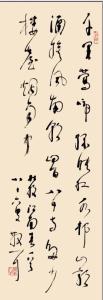 千里鶯啼綠映紅水村山郭
酒旗風南朝四百八十寺多少
樓臺煙雨中
江南春
八十